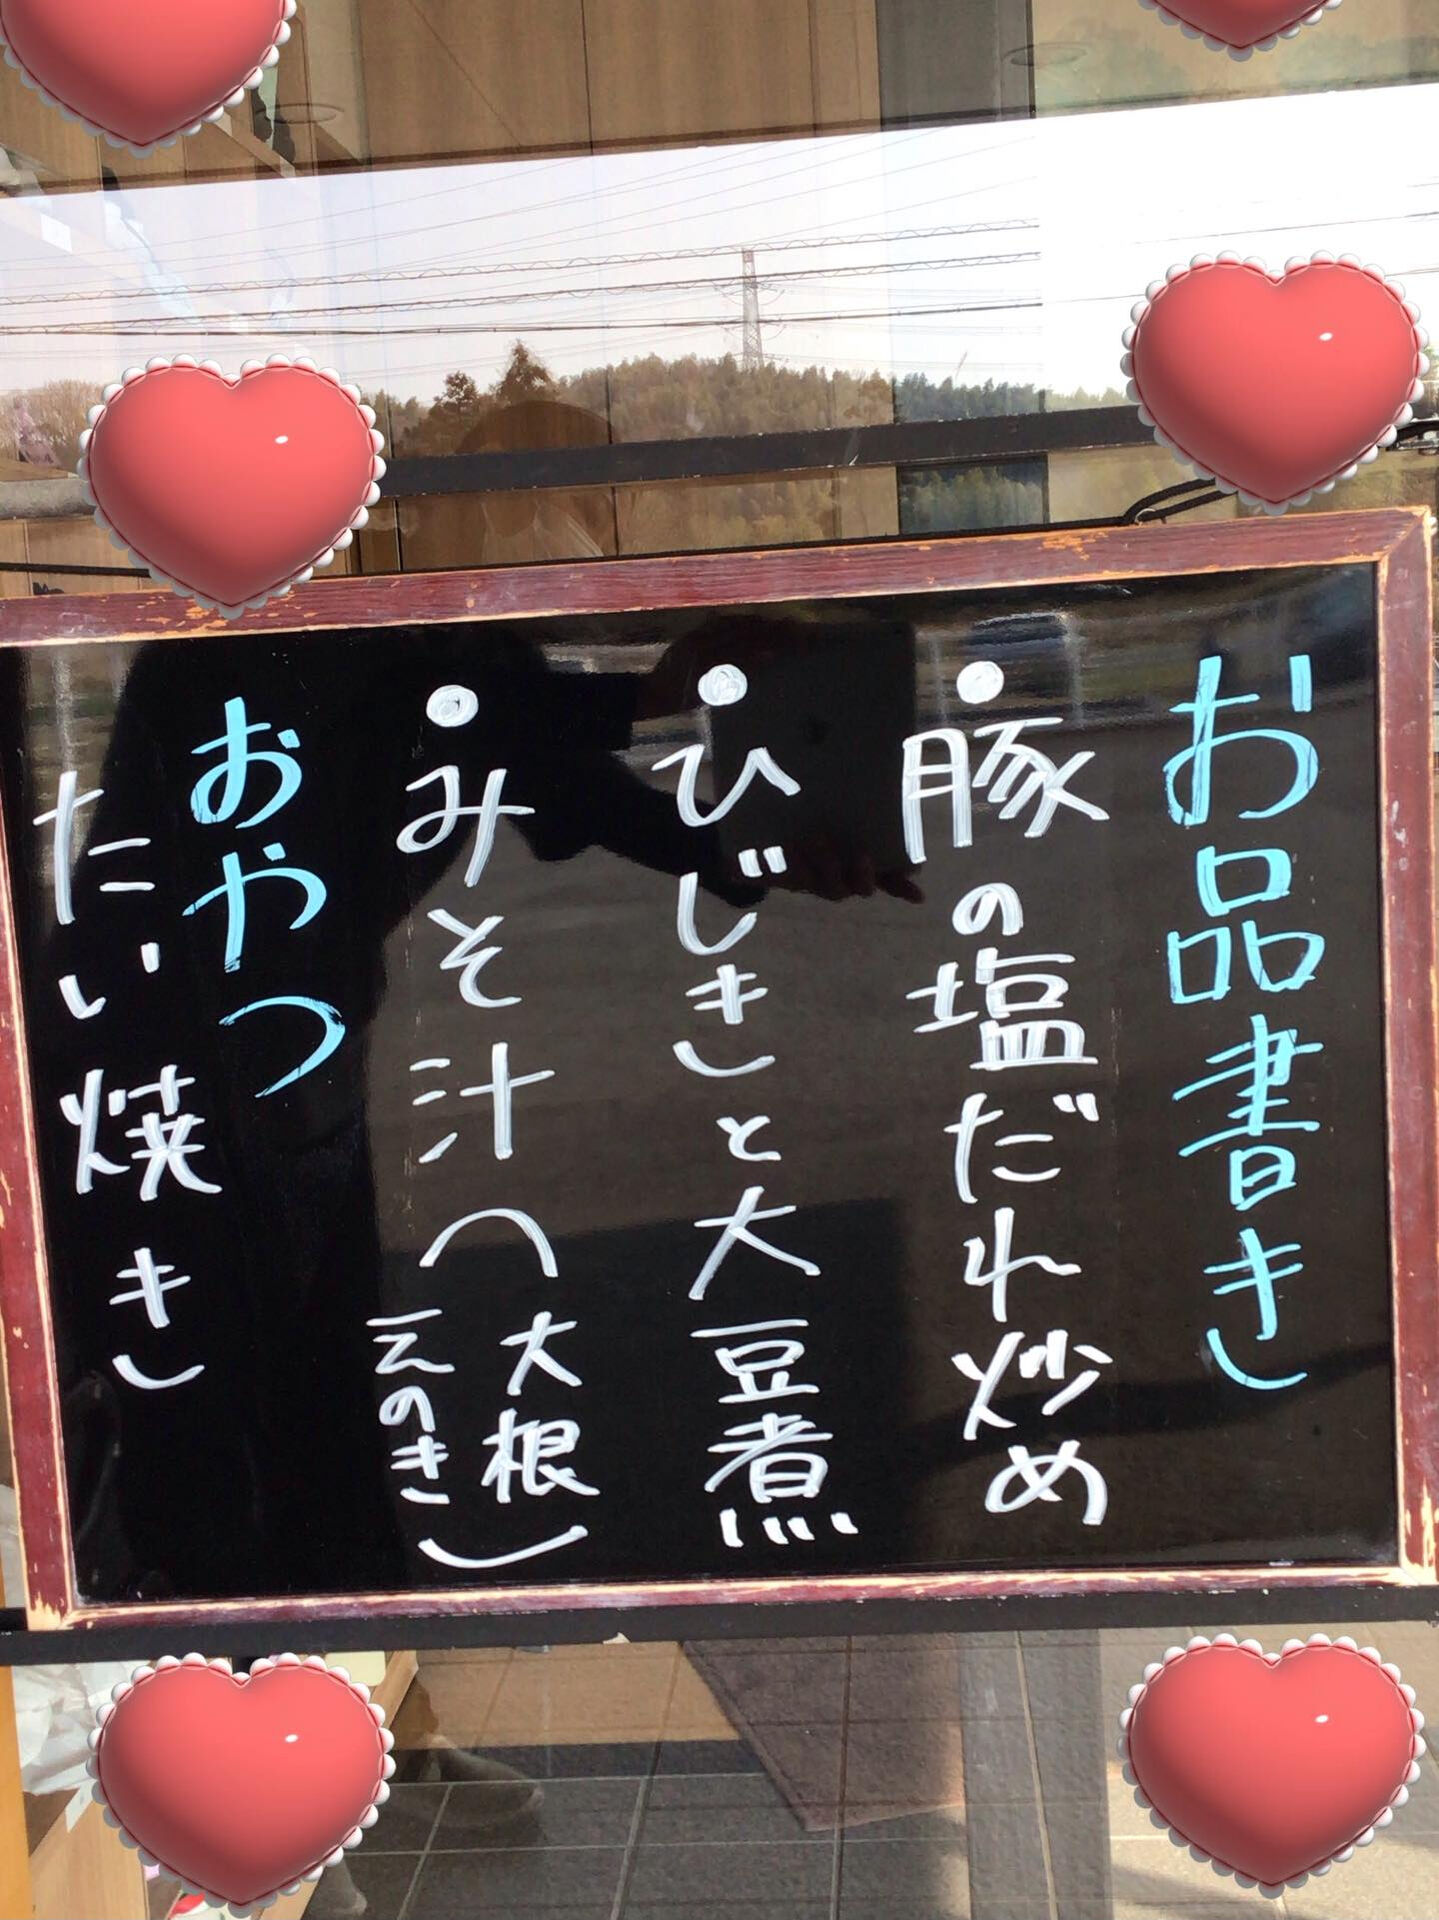 お品書き
・豚の塩だれ炒め
・ひじきと大豆煮
・みそ汁(大根
えのき)
おやつ
たい焼き